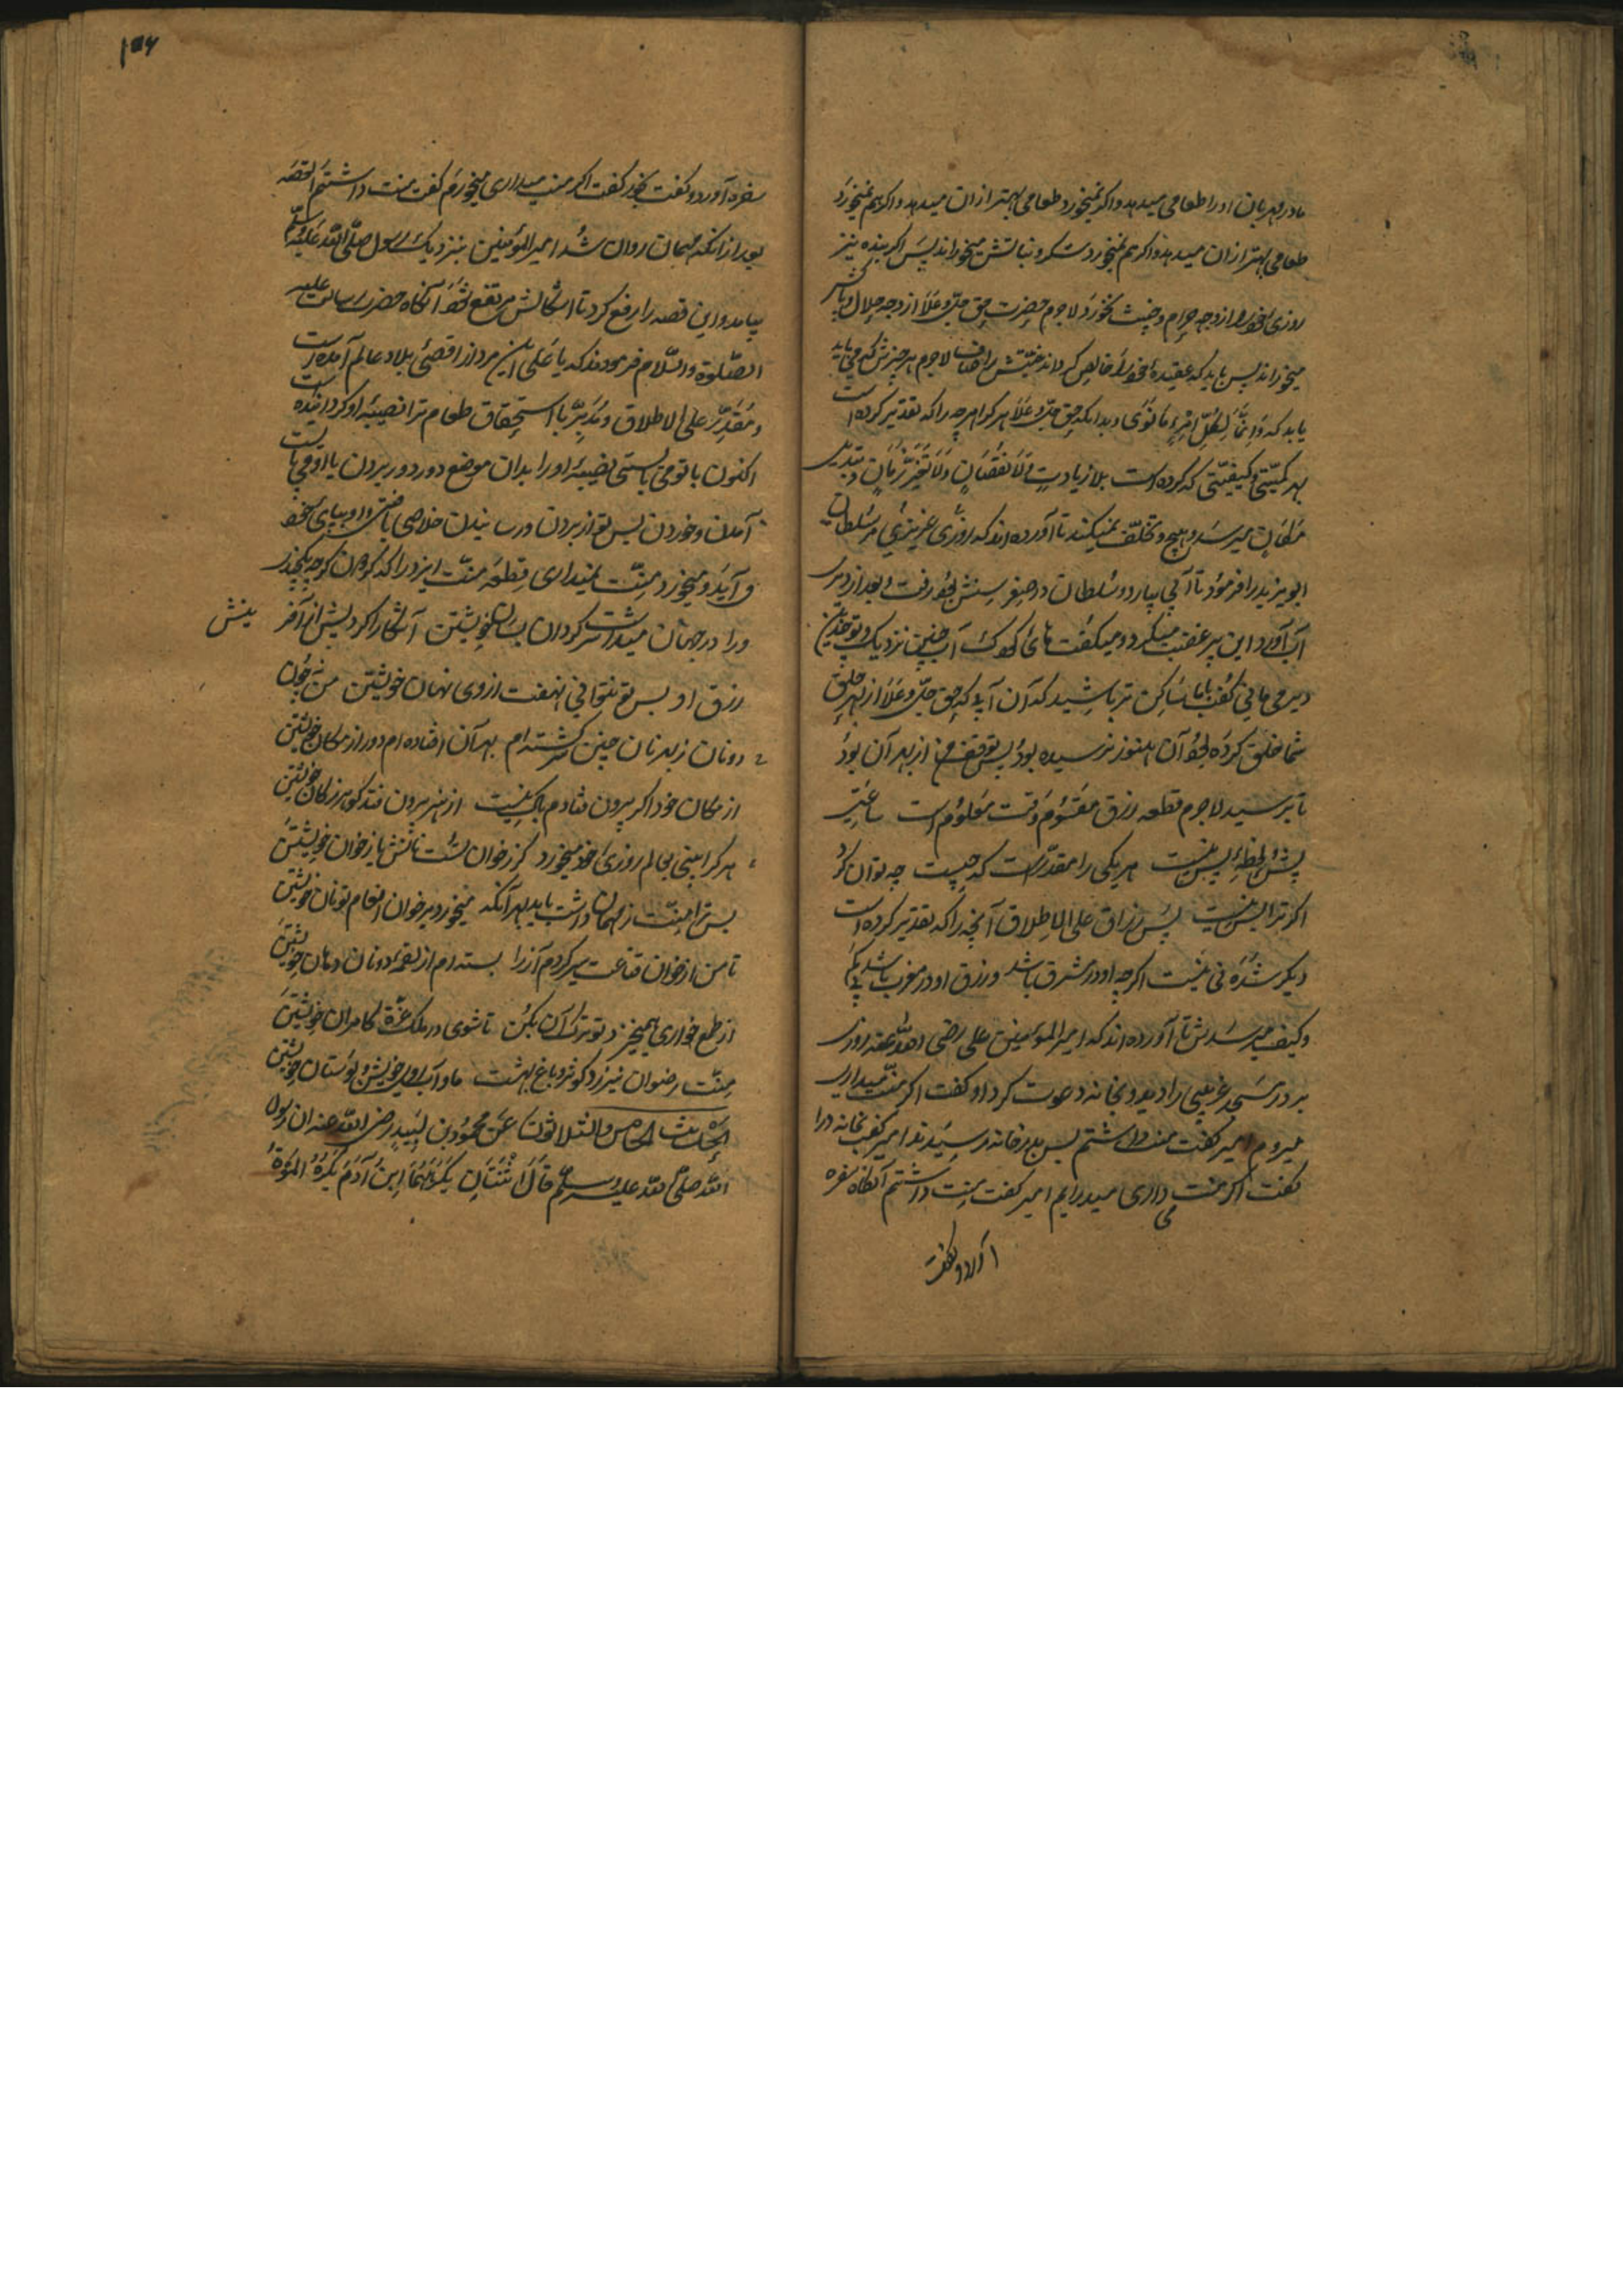 مادر مهربان او را طعامی میدهد و اگر نمیخورد طعامی بهتر از ان میدهد و اگر هم نمیخورد
طعامی بهتر از ان میدهد و اگر هم نمیخورد شکر و نباتش میخوراند پس اگر بنده نیز
روزی خود را از وجه حرام و خبیث نخورد لاجرم حضرت حق جلّ و علا از وجه حلال و پاکش
میخوراند پس باید که عقیدهٔ خود را خالص کرداند نیتش را صاف لاجرم هر چیزش که می باید
یابد که وَاِنَّمَا لِکُلِّ امْرِءٍ مَا نَوٰی و بدانکه حق جلّ و علا هر کرا هرچه را که تقدیر کرده است
بهر کمیّتی و کیفیّتی که کرده است بلا زیادتٍ وَلَا نُقْصَانٍ وَلَا تَغَیُّرِ زَمَانٍ و تبدیل
مَکَانٍ میرسد و هیچ تخلّف نمیکند تا آورده اند که روزی عزیزی مر سلطان
ابویزید را فرمود تا آبی بیارد و سلطان در صغر سنش بجو رفت و بعد از دیری
آب آورد این پیر غضب میکرد و میکفت های کودک آب چنین نزدیک و تو چندین
دیر می مانی کفت بابا ساکن تر باشید که آن آبی که حق جلّ و علا از بهر حلق
شما خلق کرده بود آن هنوز نرسیده بود پس توقف من از بهر آن بود
تا برسید لاجرم قطعه رزق مقسوم وقت معلوم است ساعتی
پیش و لحظهٔ پس نیست هر یکی را مقدّر است که چیست چه توان کرد
اکر ترا بس نیست پس رزاق علی الاطلاق آنچه را که تقدیر کرده است
دیکر شده نی نیست اکرچه او در مشرق باشد و رزق او در مغرب باشد بی کم
و کیف میرسدش تا آورده اند که امیر المومنین علی رضی الله عنه روزی
بر در مسجد غریبی را دید و بخانه دعوت کرد او کفت اکر منّت میداری
میروم امیر کفت منت داشتم پس بدر خانه رسیدند امیر کفت بخانه درا
کفت اکر منت می داری میدرایم امیر کفت منت داشتم آنکاه سفره
آورد و کفت
۱۵۶
سفره آورد و کفت بخور کفت اکر منت میداری میخورم کفت منت داشتم القصه
بعد از آنکه مهمان روان شد امیر المؤمنین بنزدیک رسول صلّی الله علیه وسلّم
بیامد و این قصه را رفع کرد تا اشکالش مرتفع شود آنکاه حضرت رسالت علیه
الصّلوة والسّلام فرمودند که یا علی این مرد از اقصیٔ بلاد عالم آمده است
و مُقَدِّر علی الاطلاق و مُدَبِّر با استحقاق طعام ترا نصیبهٔ او کردانیده است
اکنون یا تو می بایستی نصیبهٔ او را بدان موضع دور دور بردن یا او می بایست
آمدن و خوردن پس تو از بردن و رسانیدن خلاصی یافتی و او بپای خود
می آید و میخورد منّت نمیداری قِطعَه منّت ایزد را که کوهرن کرچه
ورا در جهان میداشت سرکردان بسان خویشتن آشکارا کرد پیش از آفرینش
رزق او پس تو نتوانی نهفت از وی نهان خویشتن من نه چون
دونان ز بهر نان چنین سرکشته ام بهر آن افتاده ام دور از مکان خویشتن
از مکان خود اکر بیرون فتادم باک نیست از هنر بیرون فتد کوهر ز کان خویشتن
هر کرا بینی بعالم روزیٔ خود میخورد کر ز خوان تست نانش یا ز خوان خویشتن
پس ترا منّت ز مهمان داشت باید بهر آنکه میخورد بر خوان انعام تو نان خویشتن
تا من از خوان قناعت سیر کردم آز را بسته ام از لقمهٔ دونان دهان خویشتن
از طمع خواری همیخیزد تو ترک آن بکن تا شوی در ملک عزّة کامران خویشتن
منّت رضوان نیرزد کوثر و باغ بهشت ما و آب روی خویش و بوستان خویشتن
الحدیث الخامس والثلاثون عَن محمود بن لَبِیدٍ رضی الله عنه ان رسول
الله صلّی الله علیه وسلّم قَالَ اِثْنَتَانِ یَکْرَهُهُمَا اِبنُ آدَمَ یَکْرَهُ المَوْتَ